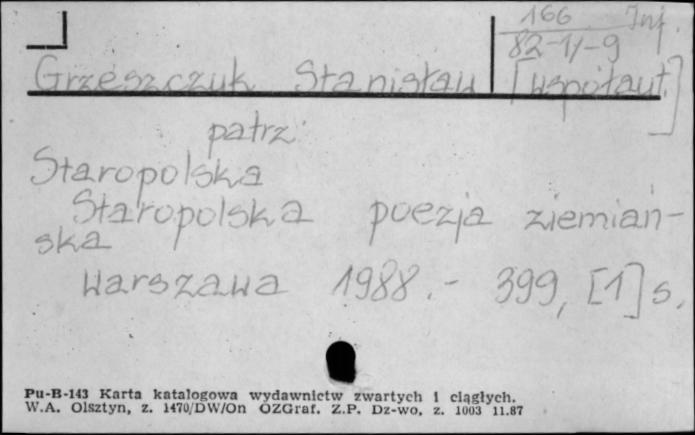 166 Inf.
82-1/-9
Grzeszczuk Stanisław [współaut.]
patrz:
Staropolska
Staropolska poezja ziemiań-
ska
Warszawa 1988.- 399, [1] s.
Pu-B-143 Karta katalogowa wydawnictw zwartych i ciągłych.
W.A. Olsztyn, z. 1470/DW/On OZGraf. Z.P. Dz-wo, z. 1003 11.87